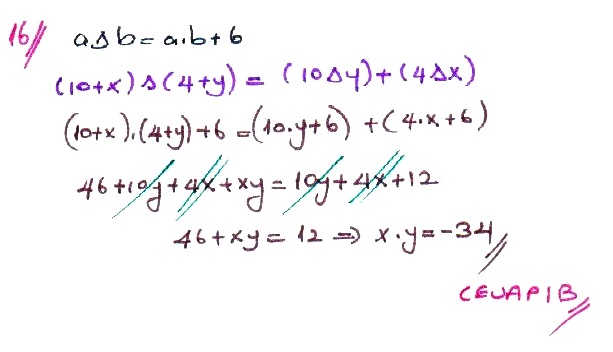 16// a Δ b = a.b + 6
(10+x) Δ (4+y) = (10Δy) + (4Δx)
(10+x).(4+y)+6 = (10.y+6) + (4.x+6)
46+10y+4x+xy = 10y+4x+12
46+xy = 12 ⇒ x.y = -34//
CEVAP B//